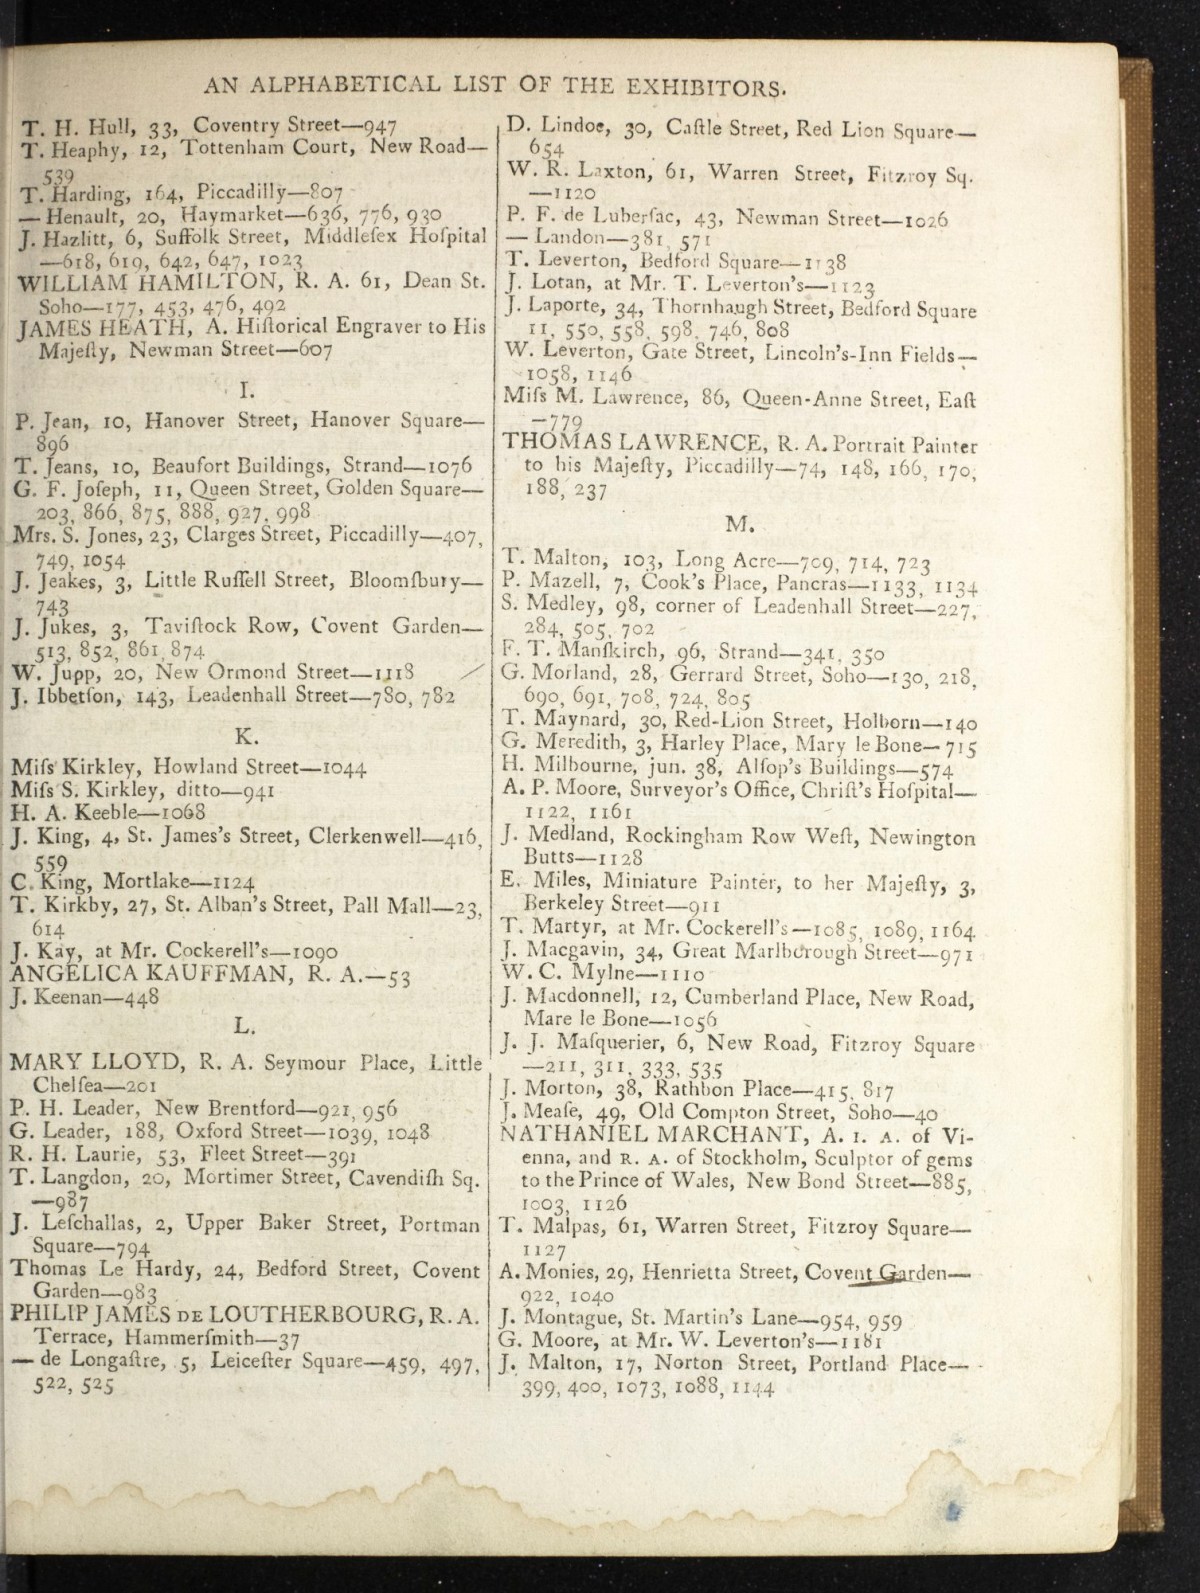 AN ALPHABETICAL LIST OF THE EXHIBITORS.
T. H. Hull, 33, Coventry Street—947
T. Heaphy, 12, Tottenham Court, New Road—
539
T. Harding, 164, Piccadilly—807
— Henault, 20, Haymarket—636, 776, 930
J. Hazlitt, 6, Suffolk Street, Middleſex Hoſpital
—618, 619, 642, 647, 1023
WILLIAM HAMILTON, R. A. 61, Dean St.
Soho—177, 453, 476, 492
JAMES HEATH, A. Hiſtorical Engraver to His
Majeſty, Newman Street—607
I.
P. Jean, 10, Hanover Street, Hanover Square—
896
T. Jeans, 10, Beaufort Buildings, Strand—1076
G. F. Joſeph, 11, Queen Street, Golden Square—
203, 866, 875, 888, 927, 998
Mrs. S. Jones, 23, Clarges Street, Piccadilly—407,
749, 1054
J. Jeakes, 3, Little Ruſſell Street, Bloomſbury—
743
J. Jukes, 3, Taviſtock Row, Covent Garden—
513, 852, 861, 874
W. Jupp, 20, New Ormond Street—1118
J. Ibbetſon, 143, Leadenhall Street—780, 782
K.
Miſs Kirkley, Howland Street—1044
Miſs S. Kirkley, ditto—941
H. A. Keeble—1068
J. King, 4, St. James's Street, Clerkenwell—416,
559
C. King, Mortlake—1124
T. Kirkby, 27, St. Alban's Street, Pall Mall—23,
614
J. Kay, at Mr. Cockerell's—1090
ANGELICA KAUFFMAN, R. A.—53
J. Keenan—448
L.
MARY LLOYD, R. A. Seymour Place, Little
Chelſea—201
P. H. Leader, New Brentford—921, 956
G. Leader, 188, Oxford Street—1039, 1048
R. H. Laurie, 53, Fleet Street—391
T. Langdon, 20, Mortimer Street, Cavendiſh Sq.
—987
J. Leſchallas, 2, Upper Baker Street, Portman
Square—794
Thomas Le Hardy, 24, Bedford Street, Covent
Garden—983
PHILIP JAMES DE LOUTHERBOURG, R. A.
Terrace, Hammerſmith—37
— de Longaſtre, 5, Leiceſter Square—459, 497,
522, 525
D. Lindoe, 30, Caſtle Street, Red Lion Square—
654
W. R. Laxton, 61, Warren Street, Fitzroy Sq.
—1120
P. F. de Luberſac, 43, Newman Street—1026
— Landon—381, 571
T. Leverton, Bedford Square—1138
J. Lotan, at Mr. T. Leverton's—1123
J. Laporte, 34, Thornhaugh Street, Bedford Square
11, 550, 558, 598, 746, 808
W. Leverton, Gate Street, Lincoln's-Inn Fields—
1058, 1146
Miſs M. Lawrence, 86, Queen-Anne Street, Eaſt
—779
THOMAS LAWRENCE, R. A. Portrait Painter
to his Majeſty, Piccadilly—74, 148, 166, 170,
188, 237
M.
T. Malton, 103, Long Acre—709, 714, 723
P. Mazell, 7, Cook's Place, Pancras—1133, 1134
S. Medley, 98, corner of Leadenhall Street—227,
284, 505, 702
F. T. Manſkirch, 96, Strand—341, 350
G. Morland, 28, Gerrard Street, Soho—130, 218,
690, 691, 708, 724, 805
T. Maynard, 30, Red-Lion Street, Holborn—140
G. Meredith, 3, Harley Place, Mary le Bone—715
H. Milbourne, jun. 38, Alſop's Buildings—574
A. P. Moore, Surveyor's Office, Chriſt's Hoſpital—
1122, 1161
J. Medland, Rockingham Row Weſt, Newington
Butts—1128
E. Miles, Miniature Painter, to her Majeſty, 3,
Berkeley Street—911
T. Martyr, at Mr. Cockerell's—1085, 1089, 1164
J. Macgavin, 34, Great Marlborough Street—971
W. C. Mylne—1110
J. Macdonnell, 12, Cumberland Place, New Road,
Mare le Bone—1056
J. J. Maſquerier, 6, New Road, Fitzroy Square
—211, 311, 333, 535
J. Morton, 38, Rathbon Place—415, 817
J. Meaſe, 49, Old Compton Street, Soho—40
NATHANIEL MARCHANT, A. I. A. of Vi-
enna, and R. A. of Stockholm, Sculptor of gems
to the Prince of Wales, New Bond Street—885,
1003, 1126
T. Malpas, 61, Warren Street, Fitzroy Square—
1127
A. Monies, 29, Henrietta Street, Covent Garden—
922, 1040
J. Montague, St. Martin's Lane—954, 959
G. Moore, at Mr. W. Leverton's—1181
J. Malton, 17, Norton Street, Portland Place—
399, 400, 1073, 1088, 1144